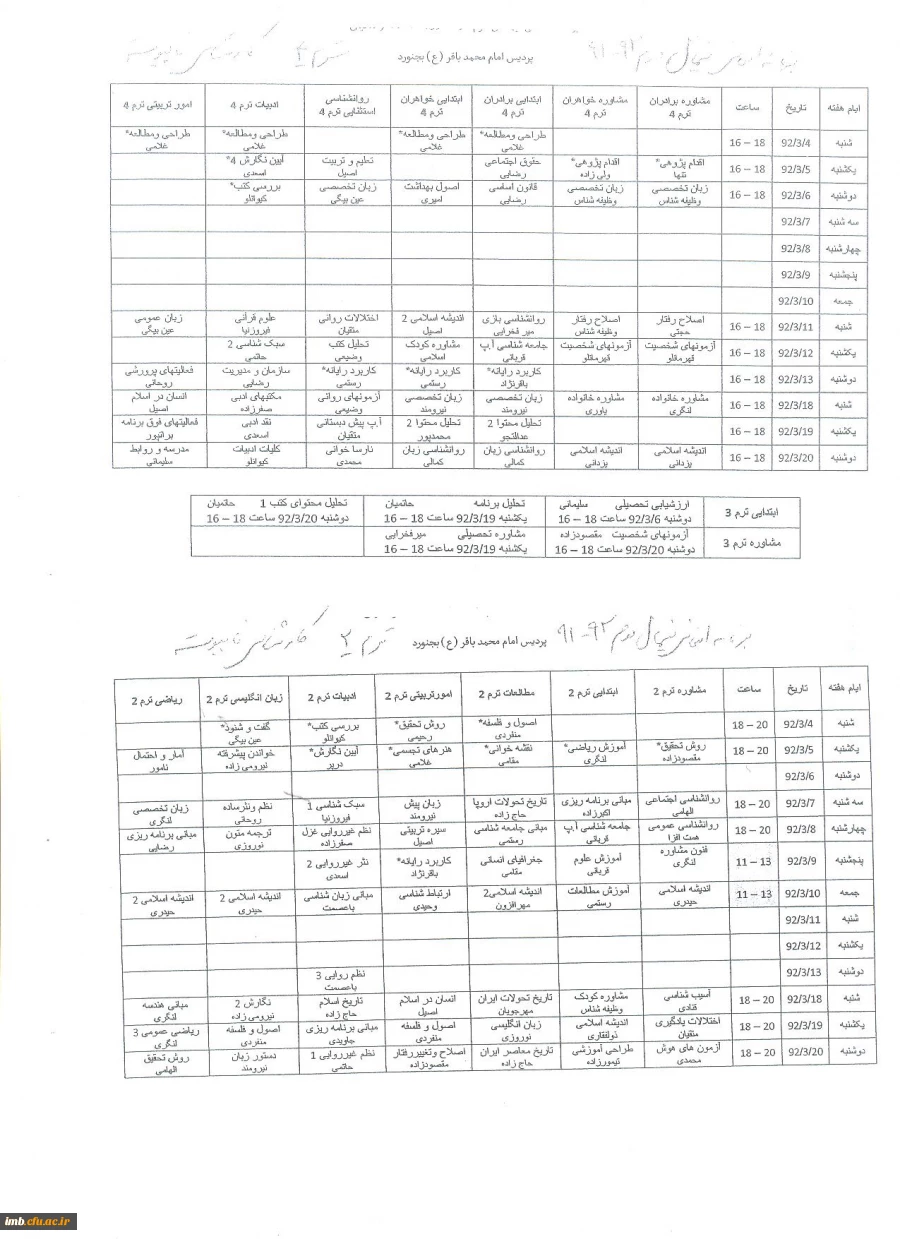 برنامه امتحانی نیمسال دوم ۹۲-۹۱ پردیس امام محمد باقر (ع) بجنورد ترم ۴ کارشناسی ناپیوسته
ایام هفته تاریخ ساعت مشاوره برادران ترم 4 مشاوره خواهران ترم 4 ابتدایی برادران ترم 4 ابتدایی خواهران ترم 4 روانشناسی استثنایی ترم 4 ادبیات ترم 4 امور تربیتی ترم 4
شنبه 92/3/4 16 – 18 طراحی ومطالعه* طراحی ومطالعه* طراحی ومطالعه* طراحی ومطالعه*
غلامی غلامی غلامی غلامی
یکشنبه 92/3/5 16 – 18 اقدام پژوهی* اقدام پژوهی* حقوق اجتماعی تعلیم و تربیت آیین نگارش 4*
تنها ولی زاده رضایی اصیل اسعدی
دوشنبه 92/3/6 16 – 18 زبان تخصصی زبان تخصصی قانون اساسی اصول بهداشت زبان تخصصی بررسی کتب*
وظیفه شناس وظیفه شناس رضایی امیری عین بیگی کیوانلو
سه شنبه 92/3/7
چهارشنبه 92/3/8
پنجشنبه 92/3/9
جمعه 92/3/10
شنبه 92/3/11 16 – 18 اصلاح رفتار اصلاح رفتار روانشناسی بازی اندیشه اسلامی 2 اختلالات روانی علوم قرآنی زبان عمومی
حجتی وظیفه شناس میر فخرایی اصیل متقیان فیروزنیا عین بیگی
یکشنبه 92/3/12 16 – 18 آزمونهای شخصیت آزمونهای شخصیت جامعه شناسی آ.پ مشاوره کودک تحلیل کتب سبک شناسی 2
قهرمانلو قهرمانلو قربانی اسلامی وضیعی حاتمی
دوشنبه 92/3/13 16 – 18 کاربرد رایانه* کاربرد رایانه* کاربرد رایانه* سازمان و مدیریت فعالیتهای پرورشی
باقرنژاد رستمی رستمی رضایی روحانی
شنبه 92/3/18 16 – 18 مشاوره خانواده مشاوره خانواده زبان تخصصی زبان تخصصی آزمونهای روانی مکتبهای ادبی انسان در اسلام
لنگری یاوری نیرومند نیرومند وضیمی صفرزاده اصیل
یکشنبه 92/3/19 16 – 18 تحلیل محتوا 2 تحلیل محتوا 2 آ.پ پیش دبستانی نقد ادبی فعالیتهای فوق برنامه
عدالتجو محمدپور متقیان اسعدی براتپور
دوشنبه 92/3/20 16 – 18 اندیشه اسلامی اندیشه اسلامی روانشناسی زبان روانشناسی زبان نارسا خوانی کلیات ادبیات مدرسه و روابط
یزدانی یزدانی کمالی کمالی محمدی کیوانلو سلیمانی
ابتدایی ترم 3 ارزشیابی تحصیلی سلیمانی تحلیل برنامه حاتمیان تحلیل محتوای کتب 1 حاتمیان
دوشنبه 92/3/6 ساعت 18 – 16 یکشنبه 92/3/19 ساعت 18 – 16 دوشنبه 92/3/20 ساعت 18 – 16
مشاوره ترم 3 آزمونهای شخصیت مقصودزاده مشاوره تحصیلی میرفخرایی
دوشنبه 92/3/20 ساعت 18 – 16 یکشنبه 92/3/19 ساعت 18 – 16
برنامه امتحانی نیمسال دوم ۹۲-۹۱ پردیس امام محمد باقر (ع) بجنورد ترم ۲ کارشناسی ناپیوسته
ایام هفته تاریخ ساعت مشاوره ترم 2 ابتدایی ترم 2 مطالعات ترم 2 امورتربیتی ترم 2 ادبیات ترم 2 زبان انگلیسی ترم 2 ریاضی ترم 2
شنبه 92/3/4 18 – 20 اصول و فلسفه* روش تحقیق* بررسی کتب* گفت و شنود*
منفردی رحیمی کیوانلو عین بیگی
یکشنبه 92/3/5 18 – 20 روش تحقیق* آموزش ریاضی* نقشه خوانی* هنرهای تجسمی* آیین نگارش* خواندن پیشرفته آمار و احتمال
مقصودزاده لنگری مقامی غلامی درپر نیرومی زاده نامور
دوشنبه 92/3/6
سه شنبه 92/3/7 18 – 20 روانشناسی اجتماعی مبانی برنامه ریزی تاریخ تحولات اروپا زبان پیش سبک شناسی 1 نظم ونثرساده زبان تخصصی
الهامی اکبرزاده حاج زاده نیرومند فیروزنیا روحانی لنگری
چهارشنبه 92/3/8 18 – 20 روانشناسی عمومی جامعه شناسی آ.پ مبانی جامعه شناسی سیره تربیتی نظم غیرروایی غزل ترجمه متون مبانی برنامه ریزی
همت افزا قربانی رستمی اصیل صفرزاده نوروزی رضایی
پنجشنبه 92/3/9 11 – 13 فنون مشاوره آموزش علوم جغرافیای انسانی کاربرد رایانه* نثر غیرروایی 2
لنگری قربانی مقامی باقرنژاد اسعدی
جمعه 92/3/10 11 – 13 اندیشه اسلامی آموزش مطالعات اندیشه اسلامی2 ارتباط شناسی مبانی زبان شناسی اندیشه اسلامی 2 اندیشه اسلامی 2
حیدری رستمی مهرافزون وحیدی باعصمت حیدری حیدری
شنبه 92/3/11
یکشنبه 92/3/12
دوشنبه 92/3/13 نظم روایی 3
باعصمت
شنبه 92/3/18 18 – 20 آسیب شناسی مشاوره کودک تاریخ تحولات ایران انسان در اسلام تاریخ اسلام نگارش 2 مبانی هندسه
قنادی وظیفه شناس مهرجویان اصیل حاج زاده نیرومی زاده لنگری
یکشنبه 92/3/19 18 – 20 اختلالات یادگیری اندیشه اسلامی زبان انگلیسی اصول و فلسفه مبانی برنامه ریزی اصول و فلسفه ریاضی عمومی 3
متقیان ذولفقاری نوروزی منفردی جاویدی منفردی لنگری
دوشنبه 92/3/20 18 – 20 آزمون های هوش طراحی آموزشی تاریخ معاصر ایران اصلاح وتغییررفتار نظم غیرروایی 1 دستور زبان روش تحقیق
محمدی تیمورزاده حاج زاده مقصودزاده حاتمی نیرومند الهامی
imb.cfu.ac.ir